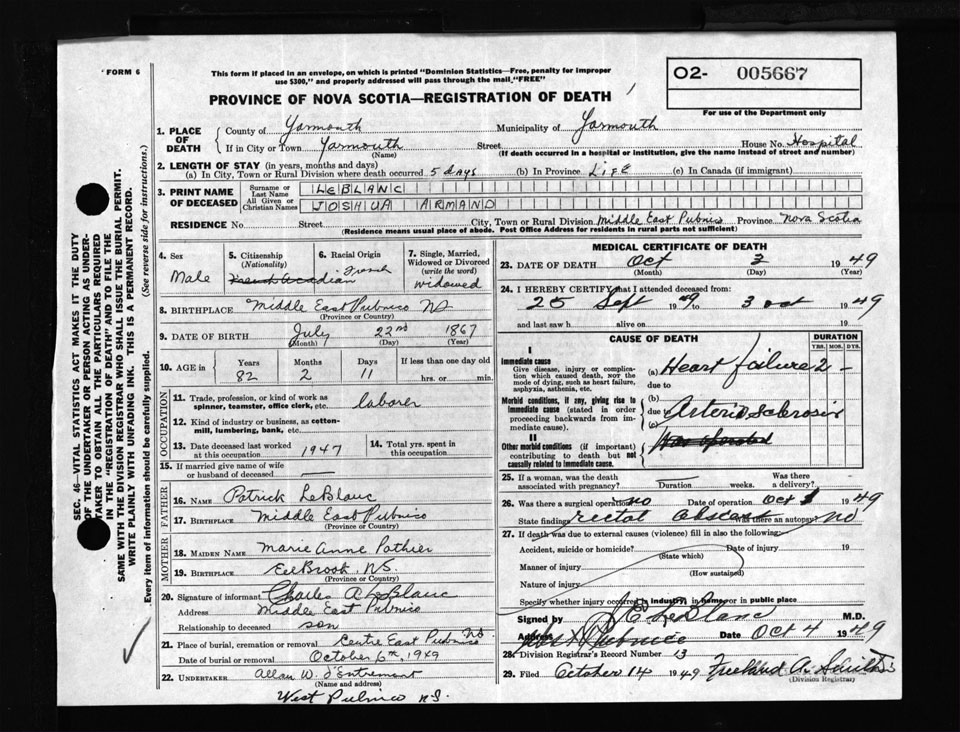 FORM 6
This form if placed in an envelope, on which is printed "Dominion Statistics—Free, penalty for improper
use $300," and properly addressed will pass through the mail "FREE"
02- 005667
For use of the Department only
PROVINCE OF NOVA SCOTIA—REGISTRATION OF DEATH
1. PLACE OF DEATH
County of Yarmouth Municipality of Yarmouth
If in City or Town Yarmouth Street House No. Hospital
(Name) (If death occurred in a hospital or institution, give the name instead of street and number)
2. LENGTH OF STAY (in years, months and days)
(a) In City, Town or Rural Division where death occurred 5 days (b) In Province Life (c) In Canada (if immigrant)
3. PRINT NAME OF DECEASED
Surname or Last Name LEBLANC
All Given or Christian Names JOSHUA ARMAND
RESIDENCE No. Street City, Town or Rural Division Middle East Pubnico Province Nova Scotia
(Residence means usual place of abode. Post Office Address for residents in rural parts not sufficient)
4. Sex Male
5. Citizenship (Nationality)
6. Racial Origin French
French Acadian
7. Single, Married, Widowed or Divorced (write the word) widowed
8. BIRTHPLACE Middle East Pubnico NS
(Province or Country)
9. DATE OF BIRTH July 22nd 1867
(Month) (Day) (Year)
10. AGE in Years 82 Months 2 Days 11 If less than one day old hrs. or min.
OCCUPATION
11. Trade, profession, or kind of work as spinner, teamster, office clerk, etc. laborer
12. Kind of industry or business, as cotton-mill, lumbering, bank, etc.
13. Date deceased last worked at this occupation 1947
14. Total yrs. spent in this occupation
15. If married give name of wife or husband of deceased —
FATHER
16. NAME Patrick LeBlanc
17. BIRTHPLACE Middle East Pubnico
(Province or Country)
MOTHER
18. MAIDEN NAME Marie Anne Pothier
19. BIRTHPLACE Eel Brook, NS.
(Province or Country)
20. Signature of informant Charles A LeBlanc
Address Middle East Pubnico
Relationship to deceased son
21. Place of burial, cremation or removal Centre East Pubnico NS.
Date of burial or removal October 6th, 1949
22. UNDERTAKER Allan W. d'Entremont
(Name and Address)
West Pubnico NS.
MEDICAL CERTIFICATE OF DEATH
23. DATE OF DEATH Oct 3 1949
(Month) (Day) (Year)
24. I HEREBY CERTIFY that I attended deceased from:
25 Sept 1949 to 3 Oct 1949
and last saw h alive on 19
CAUSE OF DEATH
DURATION
YRS. MOS. DYS.
I
Immediate cause
Give disease, injury or complication which caused death, not the mode of dying, such as heart failure, asphyxia, asthenia, etc.
(a) Heart failure 2 -
due to
Morbid conditions, if any, giving rise to immediate cause (stated in order proceeding backwards from immediate).
(b)
due to Arterio Sclerosis
(c)
II
Other morbid conditions (if important) contributing to death but not causally related to immediate cause.
25. If a woman, was the death associated with pregnancy? Duration weeks. Was there a delivery?
26. Was there a surgical operation? no Date of operation Oct 1 1949
State findings rectal abscess Was there an autopsy? no
27. If death was due to external causes (violence) fill in also the following:
Accident, suicide or homicide? Date of injury 19
(State which)
Manner of injury
(How sustained)
Nature of injury
Specify whether injury occurred in industry, in home, or in public place
Signed by LeBlanc M.D.
Address Pubnico Date Oct 4 1949
28. Division Registrar's Record Number 13
29. Filed October 14 1949
(Division Registrar)
SEC. 46—VITAL STATISTICS ACT MAKES IT THE DUTY
OF THE UNDERTAKER OR PERSON ACTING AS UNDER-
TAKER TO OBTAIN ALL THE PARTICULARS REQUIRED
IN THE "REGISTRATION OF DEATH" AND TO FILE THE
SAME WITH THE DIVISION REGISTRAR WHO SHALL ISSUE THE BURIAL PERMIT.
WRITE PLAINLY WITH UNFADING INK. THIS IS A PERMANENT RECORD.
Every item of information should be carefully supplied. (See reverse side for instructions.)